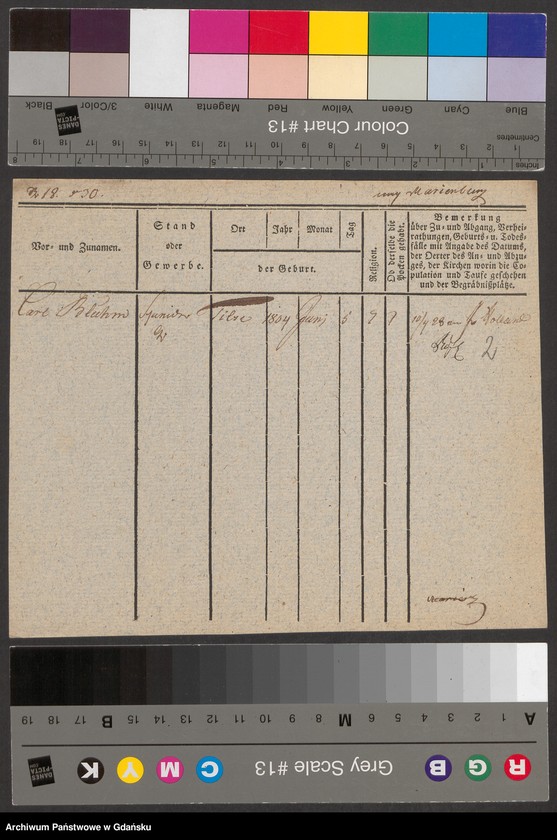 Blue Cyan Green Yellow Red Magenta White 3/Color Black
Colour Chart #13
DANES
PICTA
.COM
Centimetres
1 2 3 4 5 6 7 8 9 10 11 12 13 14 15 16 17 18 19
Inches 1 2 3 4 5 6 7 8
Marienburg
Vor- und Zunamen.
Stand
oder
Gewerbe.
Ort
Jahr
Monat
Tag
der Geburt.
Religion.
Ob derselbe die
Pocken gehabt.
Bemerkung
über Zu- und Abgang, Verhei-
rathungen, Geburts- u. Todes-
fälle mit Angabe des Datums,
der Oerter des An- und Abzu-
ges, der Kirchen worin die Co-
pulation und Taufe geschehen
und der Begräbnißplätze.
Carl Bluhm
Tilse
1804
Juni
2
A 1 2 3 4 5 6 M 8 9 10 11 12 13 14 15 B 17 18 19
R G B
Grey Scale #13
C M Y K
DANES
PICTA
.COM
Archiwum Państwowe w Gdańsku